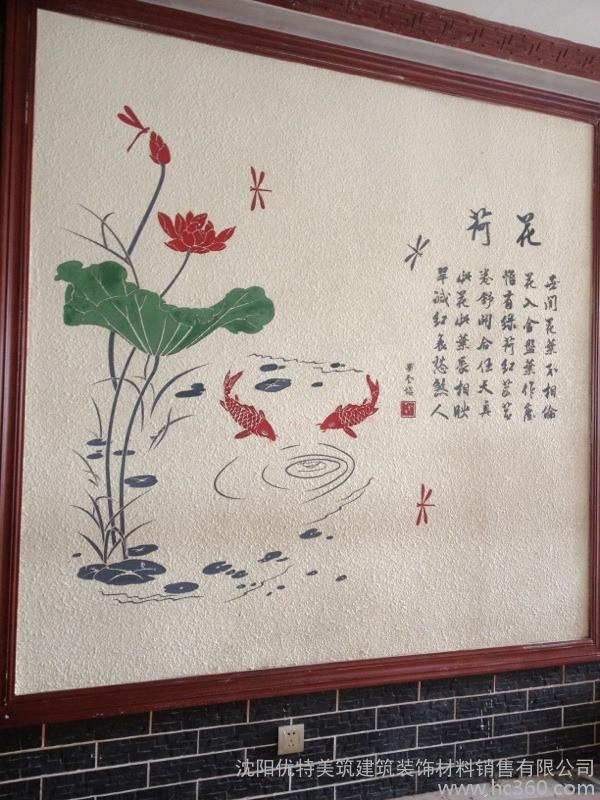 荷花
世间花葉不相倫
花入金盤葉作塵
惟有绿荷红菡萏
卷舒開合任天真
此花此葉長相映
翠減红衰愁煞人
沈阳优特美筑建筑装饰材料销售有限公司
www.hc360.com